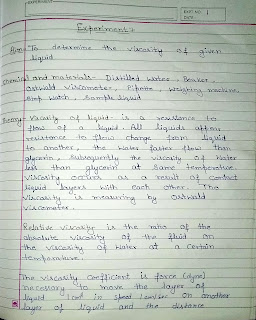 EXPERIMENT
EXPT. NO. 1
Experiment
Aim- To determine the viscosity of given
liquid
Chemical and materials- Distilled Water, Beaker,
Ostwald viscometer, Pipette, Weighing machine
Stop Watch, Sample liquid
Theory- Viscosity of liquid is a resistance to
flow of a liquid. All liquids offers
resistance to flow change from liquid
to another, the Water faster flow than
glycerin, subsequently the viscosity of Water
less than glycerin at same temperature.
Viscosity occurs as a result of contact
liquid layers with each other. The
Viscosity is measuring by Ostwald
Viscometer.
Relative viscosity is the ratio of the
absolute viscosity of the fluid on
the viscosity of Water at a certain
temperature.
The viscosity coefficient is force (dyne)
necessary to move the layer of
liquid 1cm² in speed 1cm/sec on another
layer of liquid and the distance